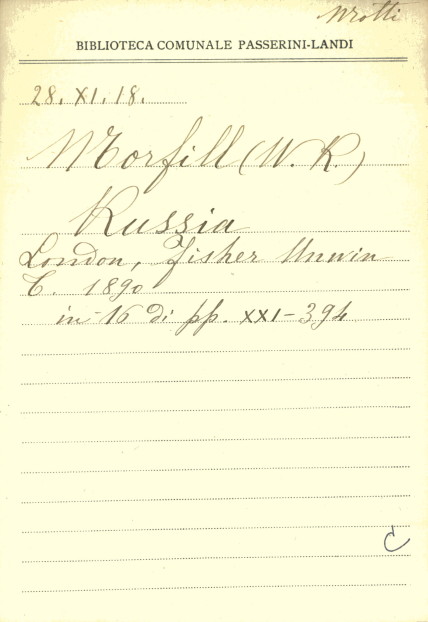 BIBLIOTECA COMUNALE PASSERINI-LANDI
28. XI. 18.
Morfill (W. R.)
Russia
London, Fisher Unwin
T. 1890
in-16 di pp. XXI-394
C